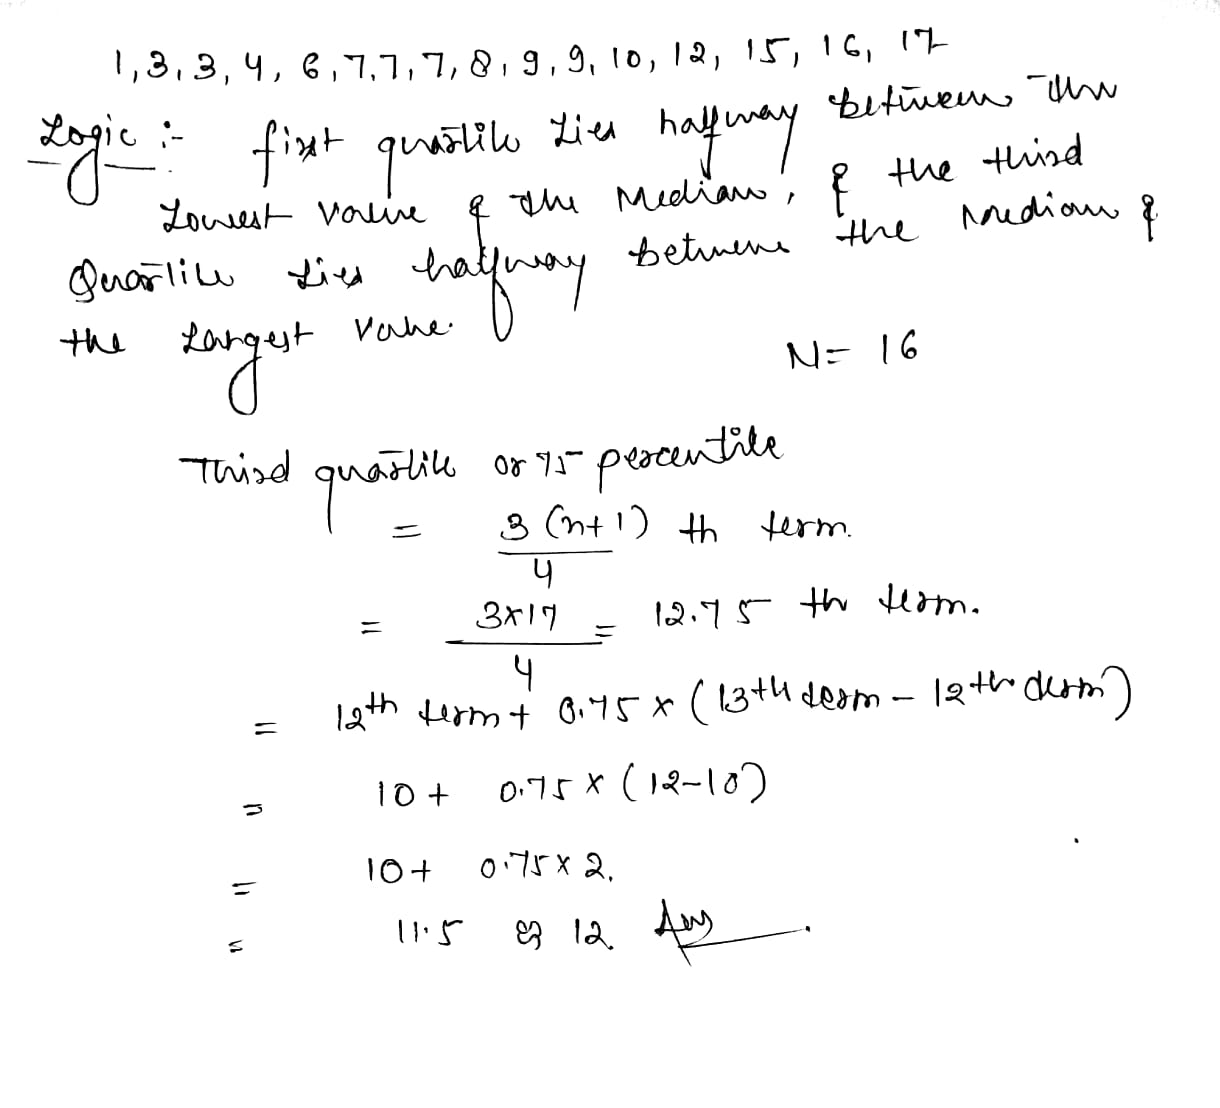 1, 3, 3, 4, 6, 7, 7, 7, 8, 9, 9, 10, 12, 15, 16, 17
Logic :- first quartile Lies halfway between the
Lowest value & the Median, & the third
Quartile Lies halfway between the Median &
the Largest Value.
N = 16
Third quartile or 75 percentile
= 3 (n+1) / 4 th term.
= 3×17 / 4 = 12.75 th term.
= 12th term + 0.75 × (13th term - 12th term)
= 10 + 0.75 × (12-10)
= 10 + 0.75 × 2.
= 11.5 12 Ans